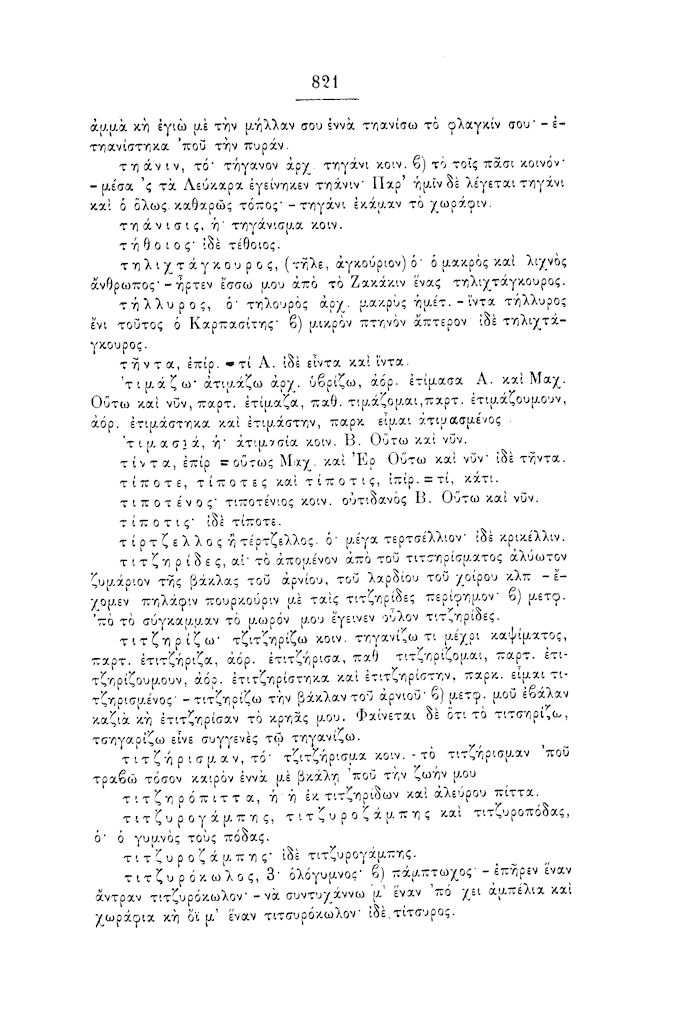 821
ἀμμὰ κὴ ἐγιὼ μὲ τὴν μήλλαν σου ἐννὰ τηανίσω τὸ φλαγκίν σου· – ἐ-
τηανίστηκα ʼποῦ τὴν πυράν.
τηάνιν, τό· τήγανον ἀρχ. τηγάνι κοιν. β) τὸ τοῖς πᾶσι κοινόν·
– μέσα ʼς τὰ Λεύκαρα ἐγείνηκεν τηάνιν· Παρʼ ἡμῖν δὲ λέγεται τηγάνι
καὶ ὁ ὅλως καθαρῶς τόπος· – τηγάνι ἐκάμαν τὸ χωράφιν.
τηάνισις, ἡ· τηγάνισμα κοιν.
τήθοιος· ἰδὲ τέθοιος.
τηλιχτάγκουρος, (τῆλε, ἀγκούριον) ὁ· ὁ μακρὸς καὶ λιχνὸς
ἄνθρωπος· – ἦρτεν ἔσσω μου ἀπὸ τὸ Ζακάκιν ἕνας τηλιχτάγκουρος.
τήλλυρος, ὁ· τηλουρὸς ἀρχ. μακρὺς ἡμέτ. – ἵντα τήλλυρος
ἔνι τοῦτος ὁ Καρπασίτης· β) μικρὸν πτηνὸν ἄπτερον· ἰδὲ τηλιχτά-
γκουρος.
τῆντα, ἐπίρ. = τί Α. ἰδὲ εἶντα καὶ ἵντα.
ʼτιμάζω· ἀτιμάζω ἀρχ. ὑβρίζω, ἀόρ. ἐτίμασα Α. καὶ Μαχ.
Οὕτω καὶ νῦν, παρτ. ἐτίμαζα, παθ. τιμάζομαι, παρτ. ἐτιμάζουμουν,
ἀόρ. ἐτιμάστηκα καὶ ἐτιμάστην, παρκ. εἶμαι ἀτιμασμένος.
ʼτιμασιά, ἡ· ἀτιμασία κοιν. Β. Οὕτω καὶ νῦν.
τίντα, ἐπίρ = οὕτως Μαχ. καὶ Ἐρ Οὕτω καὶ νῦν· ἰδὲ τῆντα.
τίποτε, τίποτες καὶ τίποτις, ἐπίρ. = τί, κάτι.
τιποτένος· τιποτένιος κοιν. οὐτιδανὸς Β. Οὕτω καὶ νῦν.
τίποτις· ἰδὲ τίποτε.
τίρτζελλος ἢ τέρτζελλος. ὁ· μέγα τερτσέλλιον· ἰδὲ κρικέλλιν.
τιτζηρίδες, αἱ· τὸ ἀπομένον ἀπὸ τοῦ τιτσηρίσματος ἀλύωτον
ζυμάριον τῆς βάκλας τοῦ ἀρνίου, τοῦ λαρδίου τοῦ χοίρου κλπ – ἔ-
χομεν πηλάφιν πουρκούριν μὲ ταῖς τιτζηρίδες περίφημον· β) μετφ.
ʼπὸ τὸ σύγκαμμαν τὸ μωρόν μου ἔγεινεν οὗλον τιτζηρίδες.
τιτζηρίζω· τζιτζηρίζω κοιν. τηγανίζω τι μέχρι καψίματος,
παρτ. ἐτιτζήριζα, ἀόρ. ἐτιτζήρισα, παθ τιτζηρίζομαι, παρτ. ἐτι-
τζηρίζουμουν, ἀόρ. ἐτιτζηρίστηκα καὶ ἐτιτζηρίστην, παρκ. εἶμαι τι-
τζηρισμένος· – τιτζηρίζω τὴν βάκλαν τοῦ ἀρνιοῦ· β) μετφ. μοῦ ἐβάλαν
καζιὰ κὴ ἐτιτζηρίσαν τὸ κρηᾶς μου. Φαίνεται δὲ ὅτι τὸ τιτσηρίζω,
τσηγαρίζω εἶνε συγγενὲς τῷ τηγανίζω.
τιτζήρισμαν, τό· τζιτζήρισμα κοιν. – τὸ τιτζήρισμαν ʼποῦ
τραβῶ τόσον καιρὸν ἐννὰ μὲ βκάλῃ ʼποῦ τὴν ζωήν μου
τιτζηρόπιττα, ἡ· ἡ ἐκ τιτζηρίδων καὶ ἀλεύρου πίττα.
τιτζυρογάμπης, τιτζυροζάμπης καὶ τιτζυροπόδας,
ὁ· ὁ γυμνὸς τοὺς πόδας.
τιτζυροζάμπης· ἰδὲ τιτζυρογάμπης.
τιτζυρόκωλος, 3· ὁλόγυμνος· β) πάμπτωχος· – ἐπῆρεν ἕναν
ἄντραν τιτζυρόκωλον· – νὰ συντυχάννω μʼ ἕναν ʼπό χει ἀμπέλια καὶ
χωράφια κὴ ὄϊ μʼ ἕναν τιτσυρόκωλον· ἰδὲ τίτσυρος.